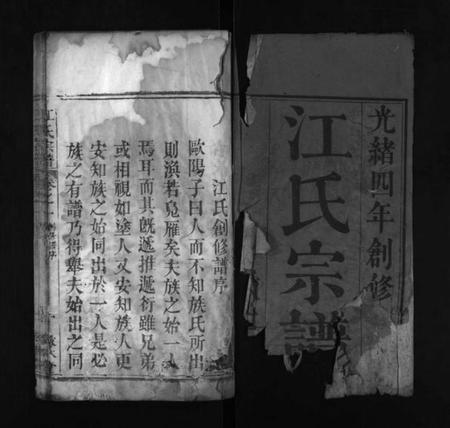 光緒四年創修
江氏宗譜
江氏創修譜序
歐陽子曰人而不知族氏所出
則渙若鳧雁矣夫族之始一人
焉耳而其旣遞推遞衍雖兄弟
或相視如塗人又安知族人更
安知族之始同出於一人是必
族之有譜乃得舉夫始出之同
江氏宗譜 卷之一